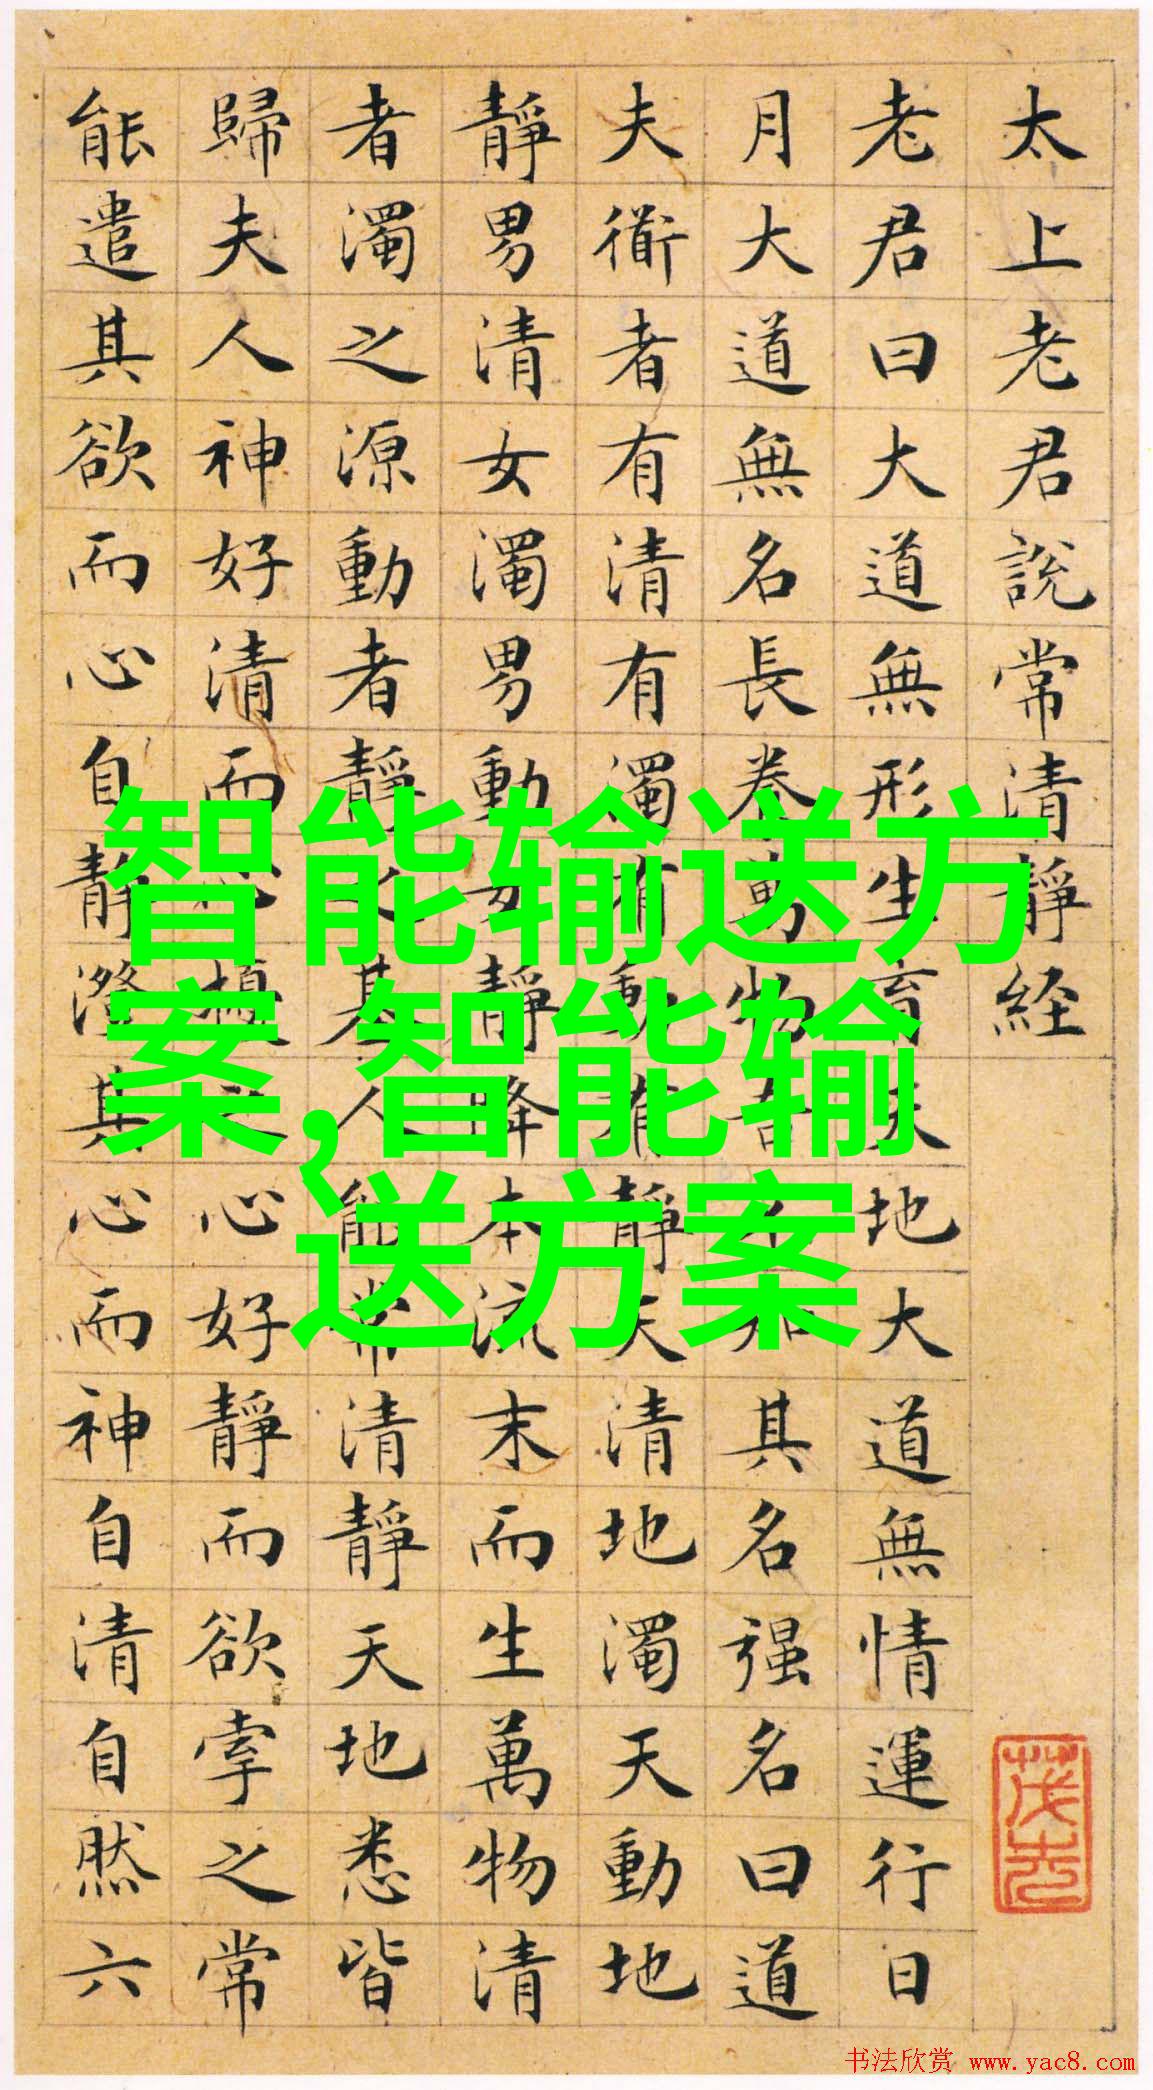 太上老君說常清靜経
老君曰大道無形生育天地大道無情運行日
月大道無名長養萬物吾不知其名强名曰道
夫衜者有清有濁有動有靜天清地濁天動地
靜男清女濁男動女靜降本流末而生萬物清
者濁之源動者靜之基人能常清靜天地悉皆
歸夫人神好清而心擾之心好靜而欲牽之常
能遣其欲而心自靜澄其心而神自清自然六
智能输送方
案,智能输
送方案
书法欣赏 www.yac8.com